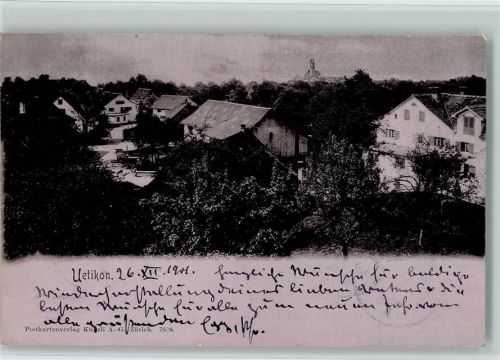 Uetikon. 26.XII.1901. herzliche Wünsche für baldige
Wiederherstellung deines lieben Vaters & die
besten Wünsche für alle zum neuen Jahr von
alle grüssenden
Postkartenverlag Künzli A.-G., Zürich. 7628.